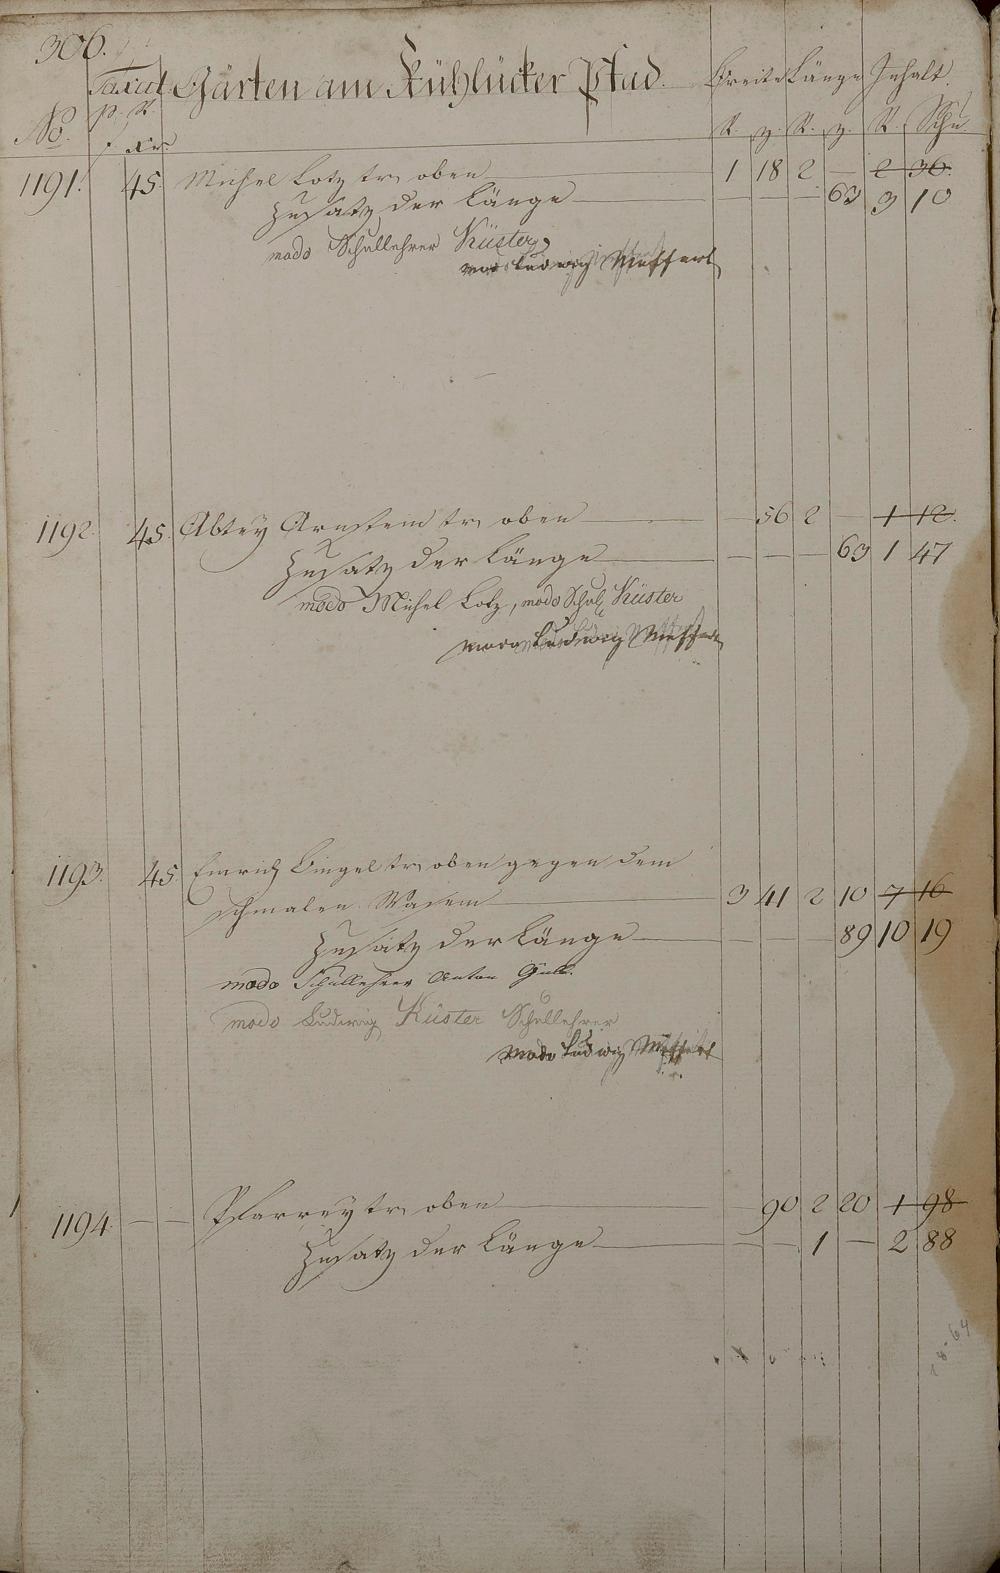 306.
Taxat. Gärten am Kühlücker Pfad. Breite Länge Inhalt
No. p. R. R. z. R. z. R. Schu
f xr.
1191. 45. Michel Lotz tr. oben 1 18 2 — 2 36.
Zusatz der Länge — — — 63 3 10
modo Schullehrer Küster,
modo Ludwig Meffert
1192. 45. Abtey Arnstein tr. oben — 56 2 — 1 12.
Zusatz der Länge — — — 63 1 47
modo Michel Lotz, modo Schull. Küster
modo Ludwig Meffert
1193. 45. Emrich Bingel tr. oben gegen dem
schmalen Wasem 3 41 2 10 7 16
Zusatz der Länge — — — 89 10 19
modo Schullehrer Anton
modo Ludwig Küster Schullehrer
modo Ludwig Meffert
1194. — — Pfarrey tr. oben — 90 2 20 1 98
Zusatz der Länge — — 1 — 2 88